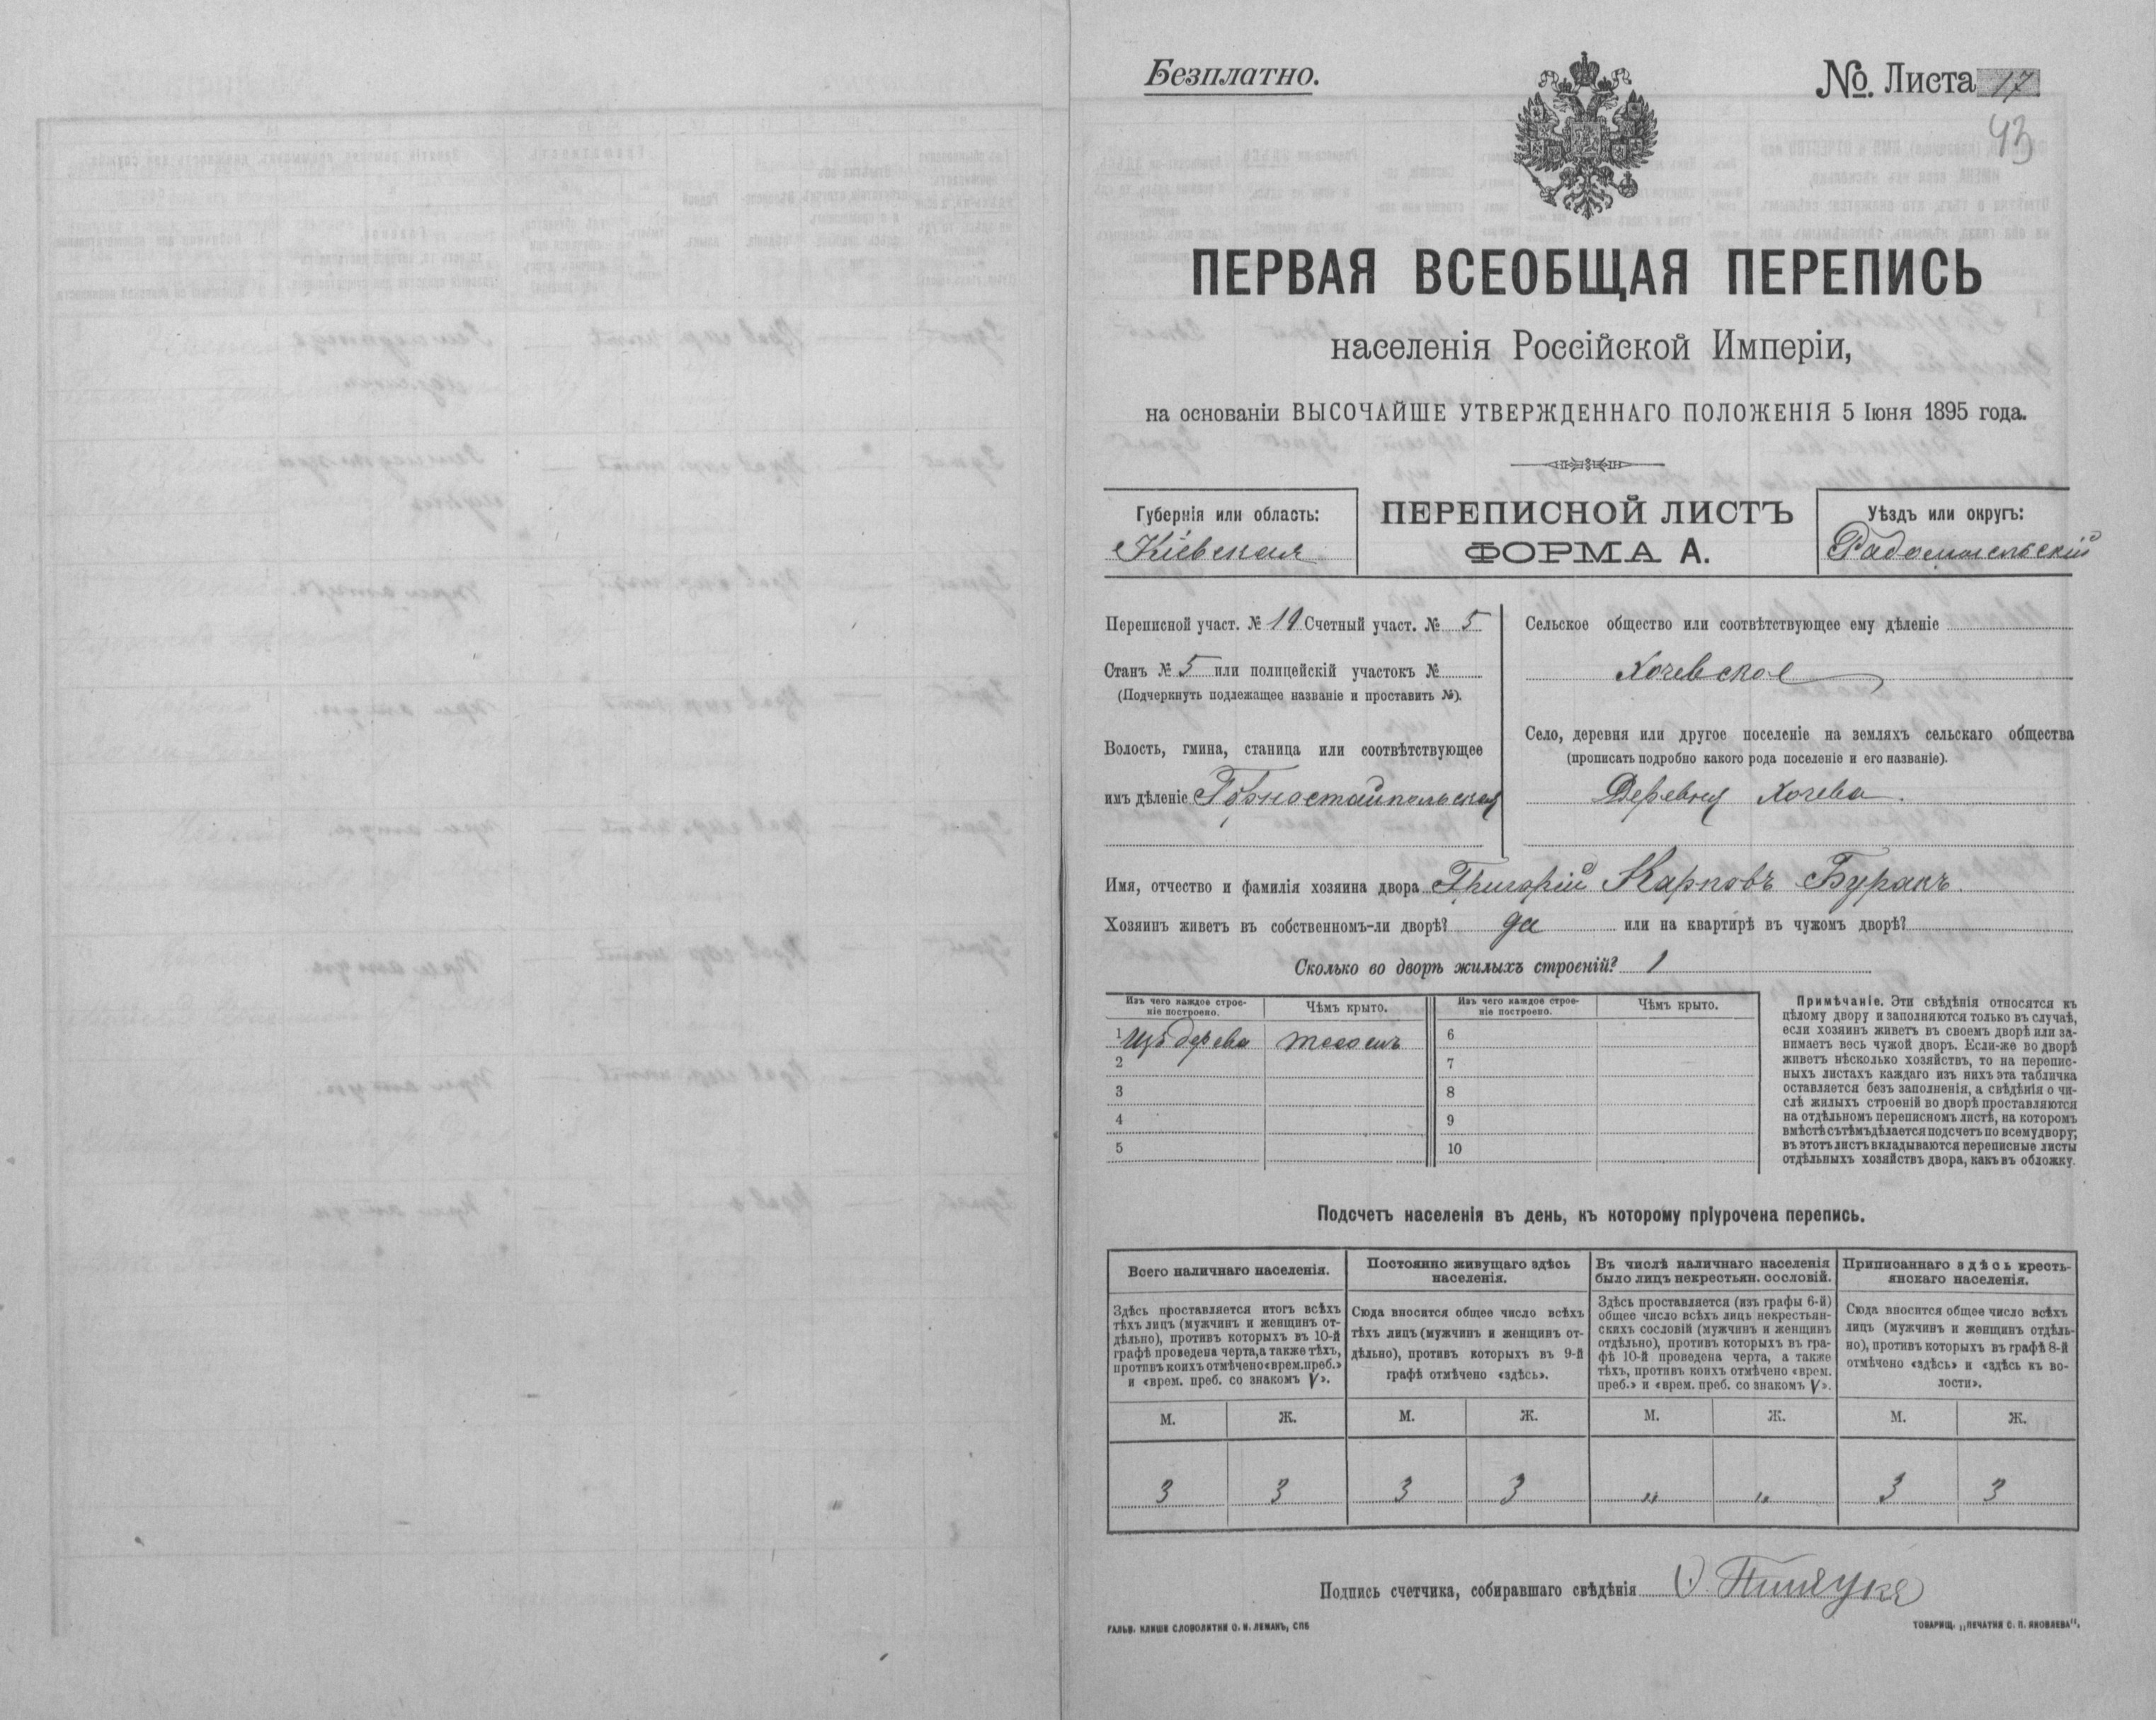 Безплатно.
№ Листа 17
43
ПЕРВАЯ ВСЕОБЩАЯ ПЕРЕПИСЬ
населенія Россійской Имперіи,
на основаніи ВЫСОЧАЙШЕ УТВЕРЖДЕННАГО ПОЛОЖЕНІЯ 5 Іюня 1895 года.
Губернія или область:
Кіевская
ПЕРЕПИСНОЙ ЛИСТЪ
ФОРМА А.
Уѣздъ или округъ:
Радомысльскій
Переписной участ. № 19 Счетный участ. № 5
Станъ № 5 или полицейскій участокъ №
(Подчеркнуть подлежащее названіе и проставить №).
Волость, гмина, станица или соотвѣтствующее
имъ дѣленіе Горностайпольская
Сельское общество или соотвѣтствующее ему дѣленіе
Хочевское
Село, деревня или другое поселеніе на земляхъ сельскаго общества
(прописать подробно какого рода поселеніе и его названіе).
Деревня Хочева.
Имя, отчество и фамилія хозяина двора Григорій Карповъ Буракъ.
Хозяинъ живетъ въ собственномъ-ли дворѣ? да или на квартирѣ въ чужомъ дворѣ?
Сколько во дворѣ жилыхъ строеній? 1
Изъ чего каждое строе-
ніе построено.
Чѣмъ крыто.
Изъ чего каждое строе-
ніе построено.
Чѣмъ крыто.
1 Изъ дерева
6
2
7
3
8
4
9
5
10
Примѣчаніе. Эти свѣдѣнія относятся къ
цѣлому двору и заполняются только въ случаѣ,
если хозяинъ живетъ въ своемъ дворѣ или за-
нимаетъ весь чужой дворъ. Если-же во дворѣ
живетъ нѣсколько хозяйствъ, то на перепис-
ныхъ листахъ каждаго изъ нихъ эта табличка
оставляется безъ заполненія, а свѣдѣнія о чи-
слѣ жилыхъ строеній во дворѣ проставляются
на отдѣльномъ переписномъ листѣ, на которомъ
вмѣстѣ съ тѣмъ дѣлается подсчетъ по всему двору;
въ этотъ листъ вкладываются переписные листы
отдѣльныхъ хозяйствъ двора, какъ въ обложку.
Подсчетъ населенія въ день, къ которому пріурочена перепись.
Всего наличнаго населенія.
Здѣсь проставляется итогъ всѣхъ
тѣхъ лицъ (мужчинъ и женщинъ от-
дѣльно), противъ которыхъ въ 10-й
графѣ проведена черта, а также тѣхъ,
противъ коихъ отмѣчено «врем. преб.»
и «врем. преб. со знакомъ V».
Постоянно живущаго здѣсь
населенія.
Сюда вносится общее число всѣхъ
тѣхъ лицъ (мужчинъ и женщинъ от-
дѣльно), противъ которыхъ въ 9-й
графѣ отмѣчено «здѣсь».
Въ числѣ наличнаго населенія
было лицъ некрестьян. сословій.
Здѣсь проставляется (изъ графы 6-й)
общее число всѣхъ лицъ некрестьян-
скихъ сословій (мужчинъ и женщинъ
отдѣльно), противъ которыхъ въ гра-
фѣ 10-й проведена черта, а также
тѣхъ, противъ коихъ отмѣчено «врем.
преб.» и «врем. преб. со знакомъ V».
Приписаннаго здѣсь кресть-
янскаго населенія.
Сюда вносится общее число всѣхъ
лицъ (мужчинъ и женщинъ отдѣль-
но), противъ которыхъ въ графѣ 8-й
отмѣчено «здѣсь» и «здѣсь къ во-
лости».
М. Ж. М. Ж. М. Ж. М. Ж.
3 3 3 3 " " 3 3
Подпись счетчика, собиравшаго свѣдѣнія
ГАЛЬВ. КЛИШЕ СЛОВОЛИТНИ О. И. ЛЕМАНЪ, СПБ
ТОВАРИЩ. „ПЕЧАТНЯ С. П. ЯКОВЛЕВА".